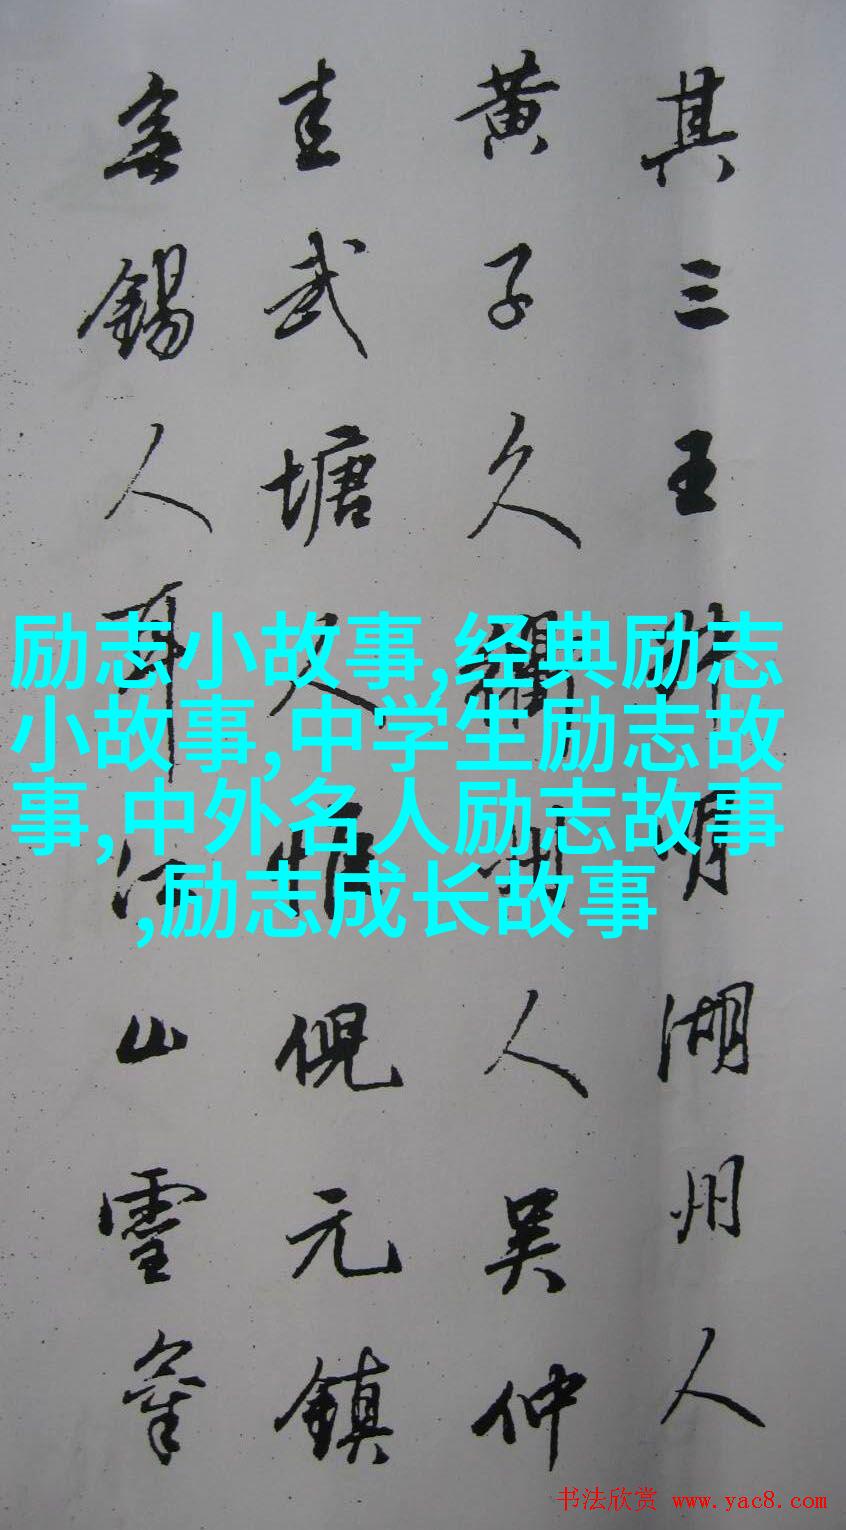 其三王叔明湖州人
黃子久衢州人吴仲
圭武塘人惟倪元鎮
無錫人耳江山靈氣
励志小故事,经典励志
小故事,中学生励志故
事,中外名人励志故事
,励志成长故事
书法欣赏 www.yac8.com